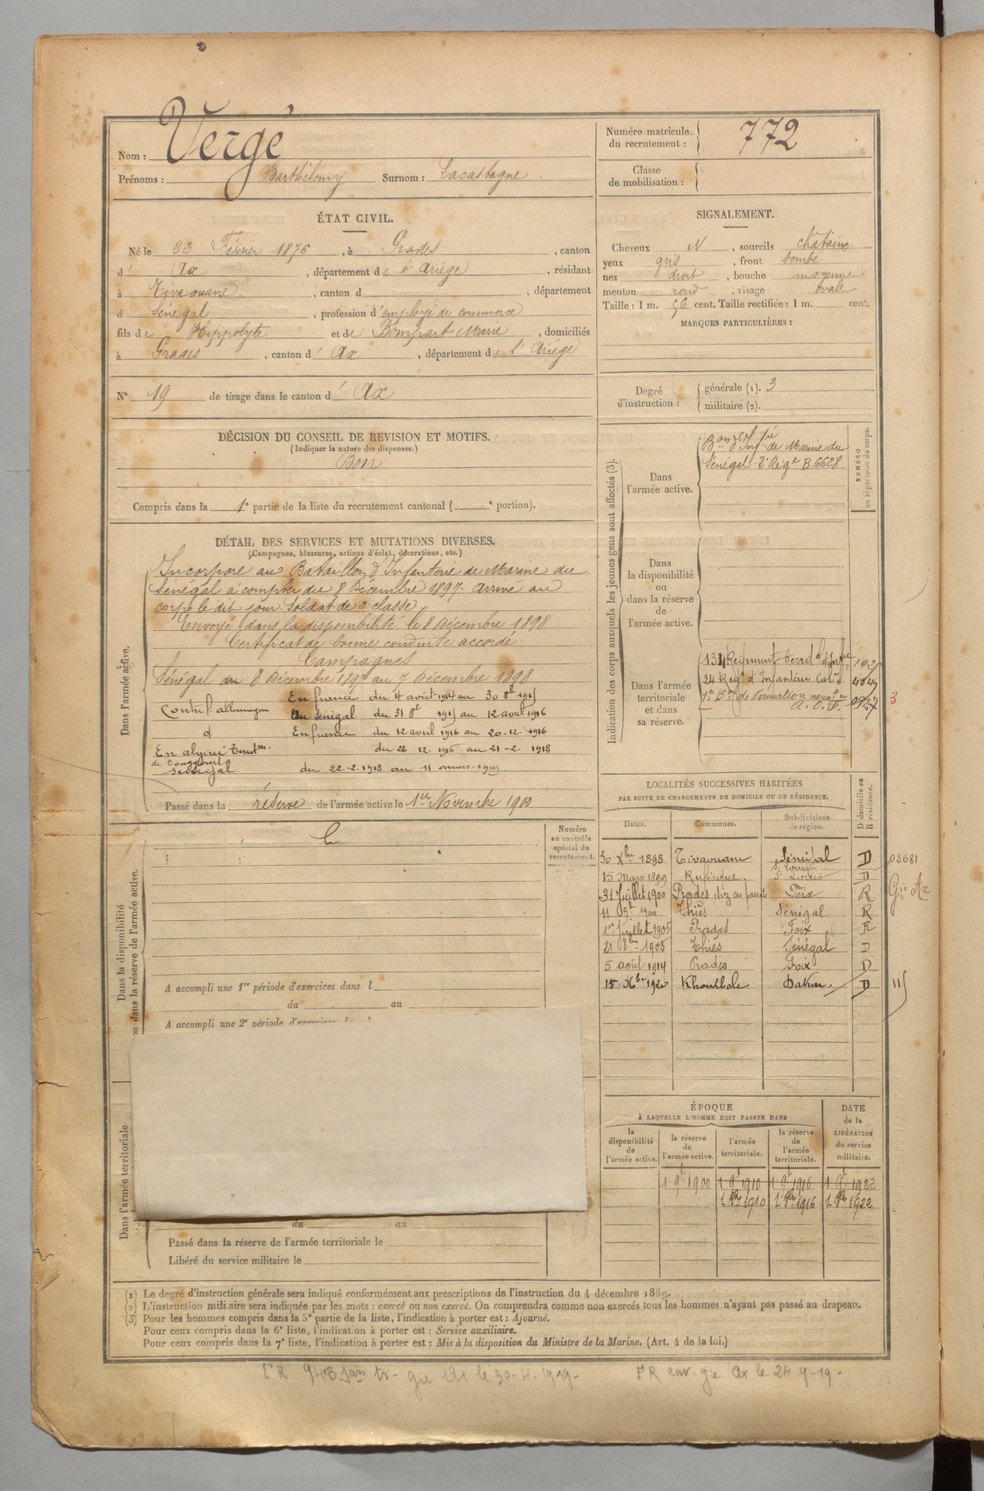 Nom : Vergé
Prénoms : Barthélémy Surnom : Lacastagne
Numéro matricule du recrutement : 772
Classe de mobilisation :
ÉTAT CIVIL.
Né le 23 Février 1876, à Prades, canton
d' Ax, département de l'Ariège, résidant
à Tivaouane, canton d , département
d Sénégal, profession d'employé de commerce
fils de Hippolyte et de Bompart Marie, domiciliés
à Prades, canton d' Ax, département de l'Ariège
N° 19 de tirage dans le canton d' Ax
SIGNALEMENT.
Cheveux N, sourcils châtains
yeux gris, front bombé
nez droit, bouche moyenne
menton rond, visage ovale
Taille : 1 m. 56 cent. Taille rectifiée : 1 m. cent.
MARQUES PARTICULIÈRES :
Degré d'instruction : générale (1). 3
militaire (2).
DÉCISION DU CONSEIL DE REVISION ET MOTIFS.
(Indiquer la nature des dispenses.)
Bon
Compris dans la 1e partie de la liste du recrutement cantonal ( e portion).
DÉTAIL DES SERVICES ET MUTATIONS DIVERSES.
(Campagnes, blessures, actions d'éclat, décorations, etc.)
Dans l'armée active.
Incorporé au Bataillon d'Infanterie de Marine du
Sénégal à compter du 8 Décembre 1897. Arrivé au
corps le dit jour. Soldat de 2e classe.
Envoyé dans la disponibilité le 8 Décembre 1898
Certificat de bonne conduite accordé.
Campagnes
Sénégal du 8 Décembre 1897 au 7 Décembre 1898
Contre l'allemagne En france du 4 août 1914 au 30 8bre 1915
Au Sénégal du 31 8bre 1915 au 12 avril 1916
d En france du 12 avril 1916 au 20-12-1916
En algérie Territre du 26 12. 1916 au 21-2. 1918
de Touggourt
Sénégal du 22-2-1918 au 11 mars-1919
Passé dans la réserve de l'armée active le 1er Novembre 1900
Indication des corps auxquels les jeunes gens sont affectés (3).
NUMÉRO au répertoire du corps.
Dans l'armée active.
Bon d'Infie de Marine du
Sénégal 2e Regt B.6628
Dans la disponibilité ou dans la réserve de l'armée active.
Dans l'armée territoriale et dans sa réserve.
134 Régiment Territal d'Infie
24 Regt d'Infanterie Colle
1er Bon de formation
A. O. F.
3
LOCALITÉS SUCCESSIVES HABITÉES
PAR SUITE DE CHANGEMENTS DE DOMICILE OU DE RÉSIDENCE.
D domicile ou R résidence.
Dates. Communes. Subdivisions de région.
30 Xbre 1898 Tivaouane Sénégal D
15 Mars 1899 Rufisque St Louis D
31 Juillet 1900 Prades chez ses parents Foix R
11 9bre 1900 Thiès Sénégal R
1er Juillet 1905 Prades Foix R
21 8bre 1905 Thiès Sénégal D
5 août 1914 Prades Foix D
15 Xbre 1920 Khombole Dakar D
03681
Gie Ax
11
Numéro au contrôle spécial du recrutement.
Dans la disponibilité ou dans la réserve de l'armée active.
A accompli une 1re période d'exercices dans l
du au
A accompli une 2e période d'exercices dans l
Dans l'armée territoriale
du au
Passé dans la réserve de l'armée territoriale le
Libéré du service militaire le
ÉPOQUE
À LAQUELLE L'HOMME DOIT PASSER DANS
DATE de la LIBÉRATION du service militaire.
la disponibilité de l'armée active. la réserve de l'armée active. l'armée territoriale. la réserve de l'armée territoriale.
1 9bre 1900 1 9bre 1910 1 9bre 1916 1 9bre 1922
1 Xbre 1910 1 Xbre 1916 1 Xbre 1922
(1) Le degré d'instruction générale sera indiqué conformément aux prescriptions de l'instruction du 4 décembre 1889.
(2) L'instruction militaire sera indiquée par les mots : exercé ou non exercé. On comprendra comme non exercés tous les hommes n'ayant pas passé au drapeau.
(3) Pour les hommes compris dans la 5e partie de la liste, l'indication à porter est : Ajourné.
Pour ceux compris dans la 6e liste, l'indication à porter est : Service auxiliaire.
Pour ceux compris dans la 7e liste, l'indication à porter est : Mis à la disposition du Ministre de la Marine. (Art. 4 de la loi.)
le 30-4-1919- FR env. gie Ax le 24-9-19-